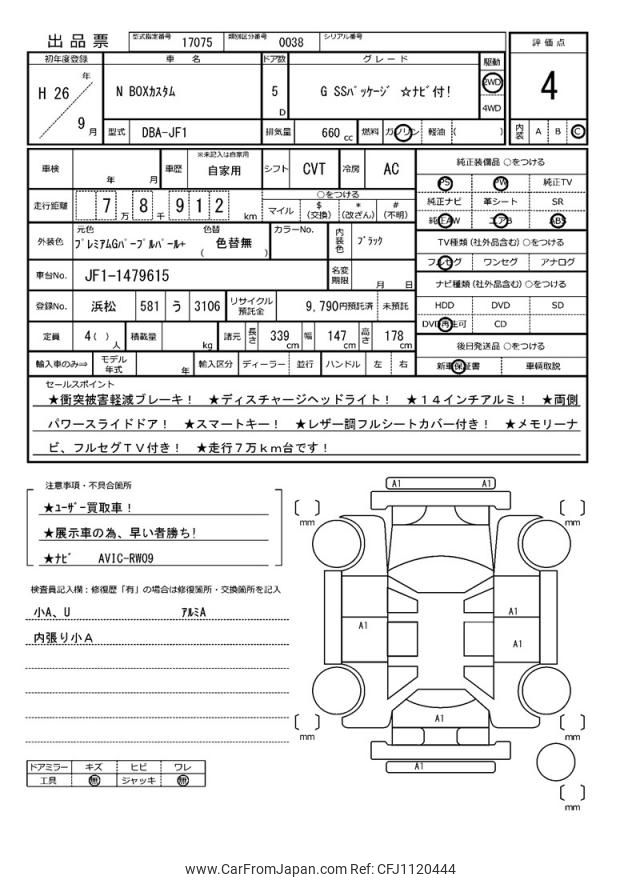 出品票 型式指定番号 17075 類別区分番号 0038 シリアル番号
評価点
初年度登録 車名 ドア数 グレード 駆動
H 26 年 9 月
N BOXカスタム 5 D G SSパッケージ ☆ナビ付! 2WD 4WD
4
型式 DBA-JF1 排気量 660 cc 燃料 ガソリン 軽油 ( )
内装 A B C
車検 年 月 車歴 ※未記入は自家用 自家用 シフト CVT 冷房 AC
走行距離 7 万 8 千 9 1 2 km
○をつける
マイル $ (交換) * (改ざん) # (不明)
外装色 元色 プレミアムGパープルパール+ 色替 ( 色替無 ) カラーNo. 内装色 ブラック
車台No. JF1-1479615 名変期限 月 日
登録No. 浜松 581 う 3106 リサイクル預託金 9,790円預託済 未預託
定員 4 ( ) 人 積載量 kg 諸元 長さ 339 cm 幅 147 cm 高さ 178 cm
輸入車のみ⇒ モデル年式 年 輸入区分 ディーラー 並行 ハンドル 左 右
純正装備品 ○をつける
PS PW 純正TV
純正ナビ 革シート SR
純正AW エアB ABS
TV種類 (社外品含む) ○をつける
フルセグ ワンセグ アナログ
ナビ種類 (社外品含む) ○をつける
HDD DVD SD
DVD再生可 CD
後日発送品 ○をつける
新車保証書 車輌取説
セールスポイント
★衝突被害軽減ブレーキ! ★ディスチャージヘッドライト! ★14インチアルミ! ★両側
パワースライドドア! ★スマートキー! ★レザー調フルシートカバー付き! ★メモリーナ
ビ、フルセグTV付き! ★走行7万km台です!
注意事項・不具合箇所
★ユーザー買取車!
★展示車の為、早い者勝ち!
★ナビ AVIC-RW09
検査員記入欄:修復歴「有」の場合は修復箇所・交換箇所を記入
小A、U アルミA
内張り小A
ドアミラー キズ ヒビ ワレ
工具 無 ジャッキ 無
A1 A1
mm mm
A1
A1
A1
A1
mm mm
A1
mm
www.CarFromJapan.com Ref: CFJ1120444